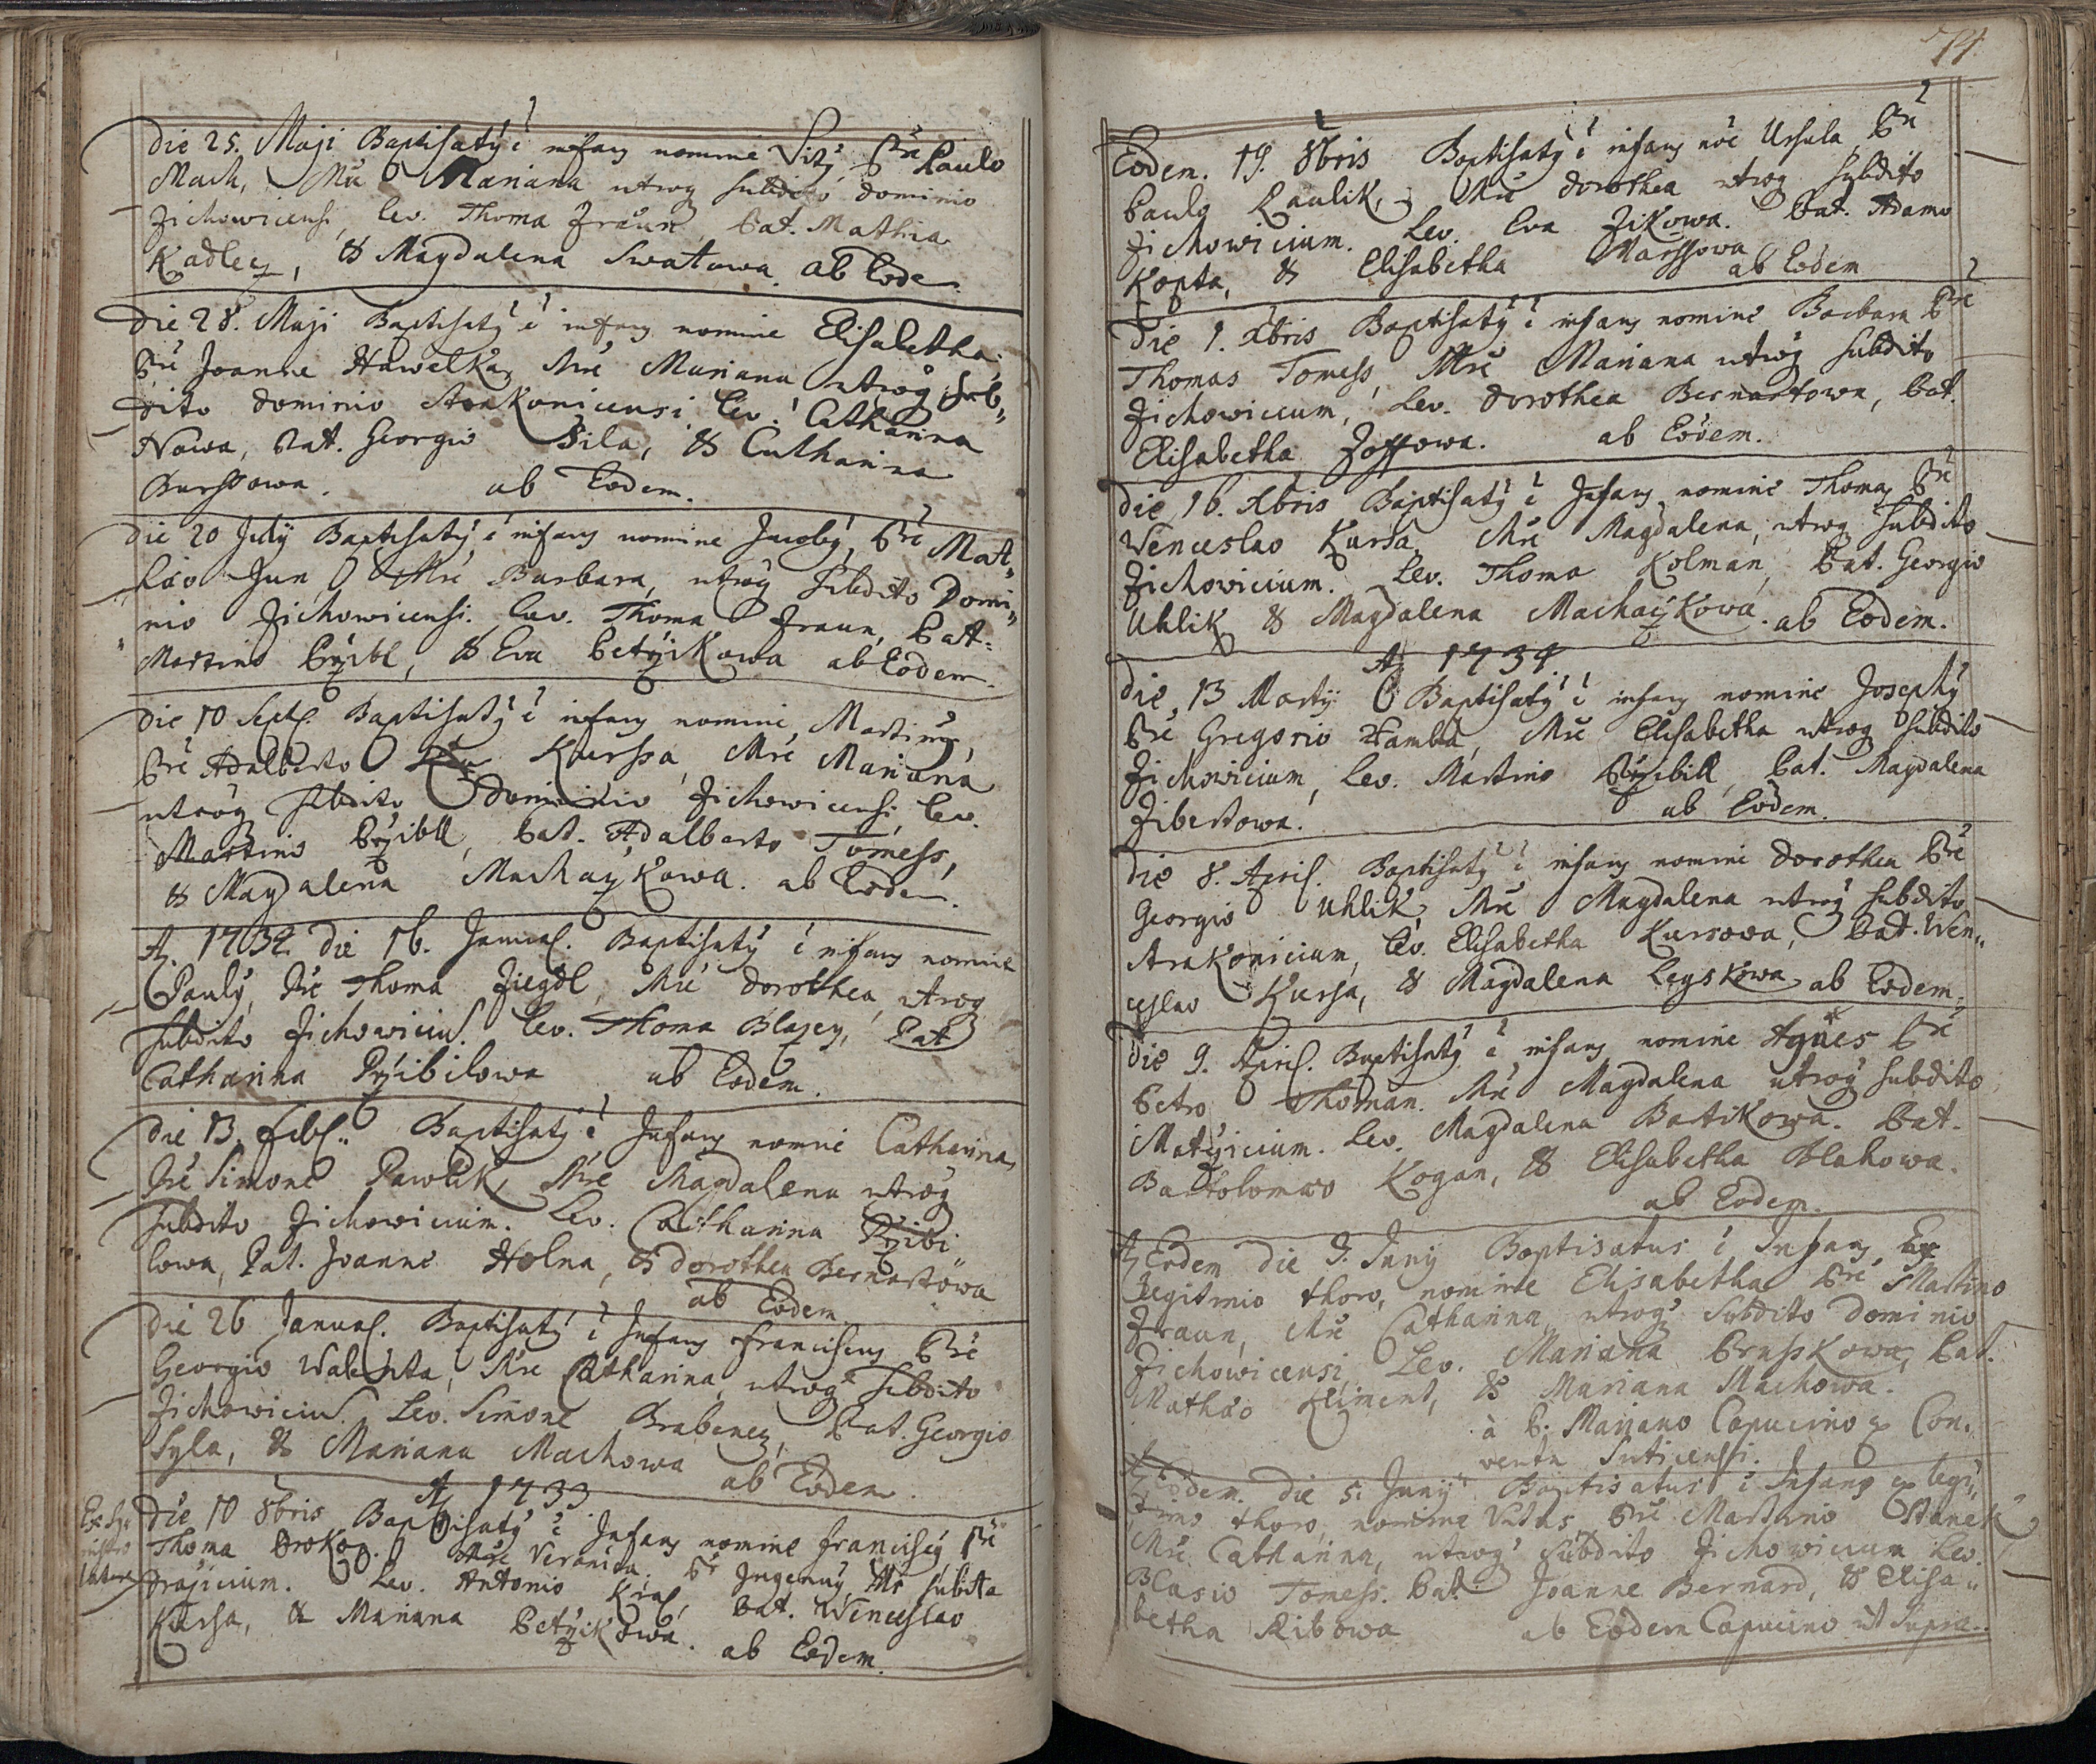 Die 25. Maji Baptisatỹ ẽ infans nomine Vitỹ Prẽ Paulo
Mach, Mrẽ Mariana utroq subdito dominio
Zichowicensi, Lev. Thoma Fraun, Pat. Mathia
Kadlecz, & Magdalena Swatowa. ab Eode.
Die 28. Maji Baptisatỹ ẽ infans nomine Elisabetha.
Prẽ Joanne Hawelka, Mrẽ Mariana utroq sub„
dito dominio Strakonicensi Lev. Catharina
Nowa, Pat. Georgio Sila, & Catharina
Burssowa. ab Eodem.
Die 20 Julij Baptisatỹ ẽ infans nomine Jacobỹ, Prẽ Mat„
häo Jun, Mrẽ Barbara, utroq subdito Domi„
nio Zichowicensi. Lev. Thoma Fraun, Pat.
Martino Przibl, & Eva Petrzikowa ab Eodem.
Die 10 Sept. Baptisatỹ ẽ infans nomine Martinỹ,
Prẽ Adalberto Kurssa, Mrẽ Mariana
utroq subdito Dominio Zichowicensi, Lev.
Martino Przibll, Pat. Adalberto Tomess,
& Magdalena Machaczkowa. ab Eodem.
Aõ. 1732 die 16. Januar. Baptisatỹ ẽ infans nomine
Paulỹ, Prẽ Thoma Ziegdl, Mrẽ Dorothea, utroq
subdito Zichowiciũ. Lev. Thoma Blazey, Pat
Catharina Przibilowa ab Eodem.
Die 13. Feb. Baptisatỹ ẽ Infans nomine Catharina,
Prẽ Simone Pawlik, Mrẽ Magdalena utroq
subdito Zichowicium. Lev. Catharina Przibi
lowa, Pat. Joanne Holna, & Dorothea Bernartowa
ab Eodem
Die 26 Januar. Baptisatỹ ẽ Infans Franciscus Prẽ
Georgio Walenta, Mrẽ Catharina, utroq subdito
Zichowiciũ. Lev. Simone Brabenecz, Pat. Georgio
Syla, & Mariana Machowa ab Eodem.
Aõ 1733
Die 10 8bris Baptisatỹ ẽ Infans nomine Franciscỹ, Prẽ
Thoma Prokop. Mrẽ Veronica. Pr Ingenuỹ Mr subdita
Lev. Antonio Kral, Pat. Wenceslao
Kursa, & Mariana Petrzikowa. ab Eodem.
74.
Eodem. 19. 8bris Baptisatỹ ẽ infans nõe Ursula, Prẽ
Paulo Paulik, Mrẽ Dorothea utroq subdito
Zichowicium. Lev. Eva Zikowa. Pat. Adamo
Kopta, & Elisabetha Marssowa
ab Eodem
Die 1. Xbris Baptisatỹ ẽ infans nomine Barbara Prẽ
Thomas Tomess, Mrẽ Mariana utroq subdito
Zichowicium, Lev. Dorothea Bernartowa, Pat.
Elisabetha Zoffowa. ab Eodem.
Die 16. Xbris Baptisatỹ ẽ Infans nomine Thomas Prẽ
Venceslao Kursa, Mrẽ Magdalena, utroq subdito
Zichowicium. Lev. Thoma Kolman, Pat. Georgio
Uhlik & Magdalena Machaczkowa. ab Eodem.
Aõ 1734.
Die 13 Martij Baptisatỹ ẽ infans nomine Josephỹ
Prẽ Gregorio Hamba, Mrẽ Elisabetha utroq subdito
Zichowicium, Lev. Martino Przibill, Pat. Magdalena
Zibertowa. ab Eodem.
Die 8. April. Baptisatỹ ẽ infans nomine Dorothea Prẽ
Georgio Uhlik, Mrẽ Magdalena utroq subdito
Strakonicium, Lev. Elisabetha Kursowa, Pat. Wen„
ceslao Kursa, & Magdalena Leyskowa ab Eodem.
Die 9. April. Baptisatỹ ẽ infans nomine Agnes Prẽ
Petro Thoman. Mrẽ Magdalena utroq subdito
Lev. Magdalena Bartikowa. Pat.
Bartolomæo Kogan, & Elisabetha Blahowa.
ab Eodem.
Aõ Eodem die 3. Junij Baptisatus ẽ Infans Ex
Legitimo thoro, nomine Elisabetha Prẽ Martino
Fraun, Mrẽ Catharina, utroq subdito Dominio
Zichowicensi. Lev. Mariana Prusskowa, Pat.
Mathäo Kliment, & Mariana Machowa.
à P. Mariano Capucino ex Con„
ventu Suticensi.
Aõ Eodem die 5. Junij Baptisatus ẽ Infans ex legi„
timo thoro, nomine Vitus, Prẽ Martino Stanek,
Mrẽ Catharina, utroq subdito Zichowicium Lev.
Blasio Tomess. Pat. Joanne Bernard, & Elisa„
betha Ribowa ab Eodem Capucino ut Supra.